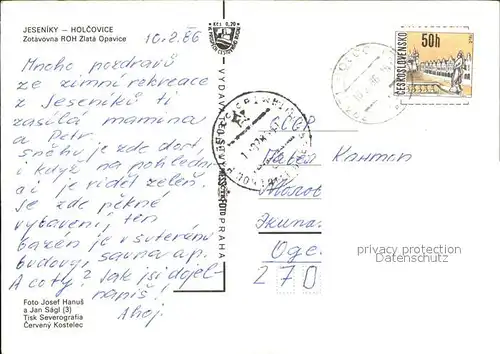 JESENÍKY – HOLČOVICE
Zotavovna ROH Zlatá Opavice
10.2.86
Mnoho pozdravů
ze zimní rekreace
z Jeseníků ti
zasílá mamina
a Petr.
sněhu je zde dost,
i když na pohledni
ci je vidět zeleň.
Je zde pěkné
vybavení, ten
bazén je v suterénu
budovy, sauna a p.
A co ty? Jak jsi dojel
napiš!
Ahoj.
Foto Josef Hanuš
a Jan Ságl (3)
Tisk Severografia
Červený Kostelec
Kčs 0,70
PRAHA
ČESKOSLOVENSKO
50h
СССР
Кантон
Оде
270
privacy protection
Datenschutz